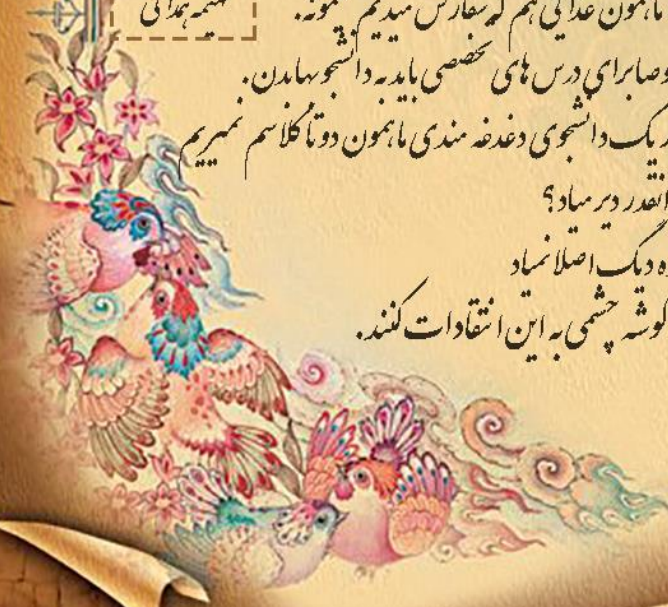 ماهمون غذایی هم که سفارش میدیم نمونه.
وصا برای درس های تخصصی باید به دانشجو بها بدن.
یک دانشجوی دغدغه مندی ماهمون دو تا کلاسم نمیریم
انقدر دیر میاد؟
دیگ اصلا نمیاد
گوشه چشمی به این انتقادات کنند.